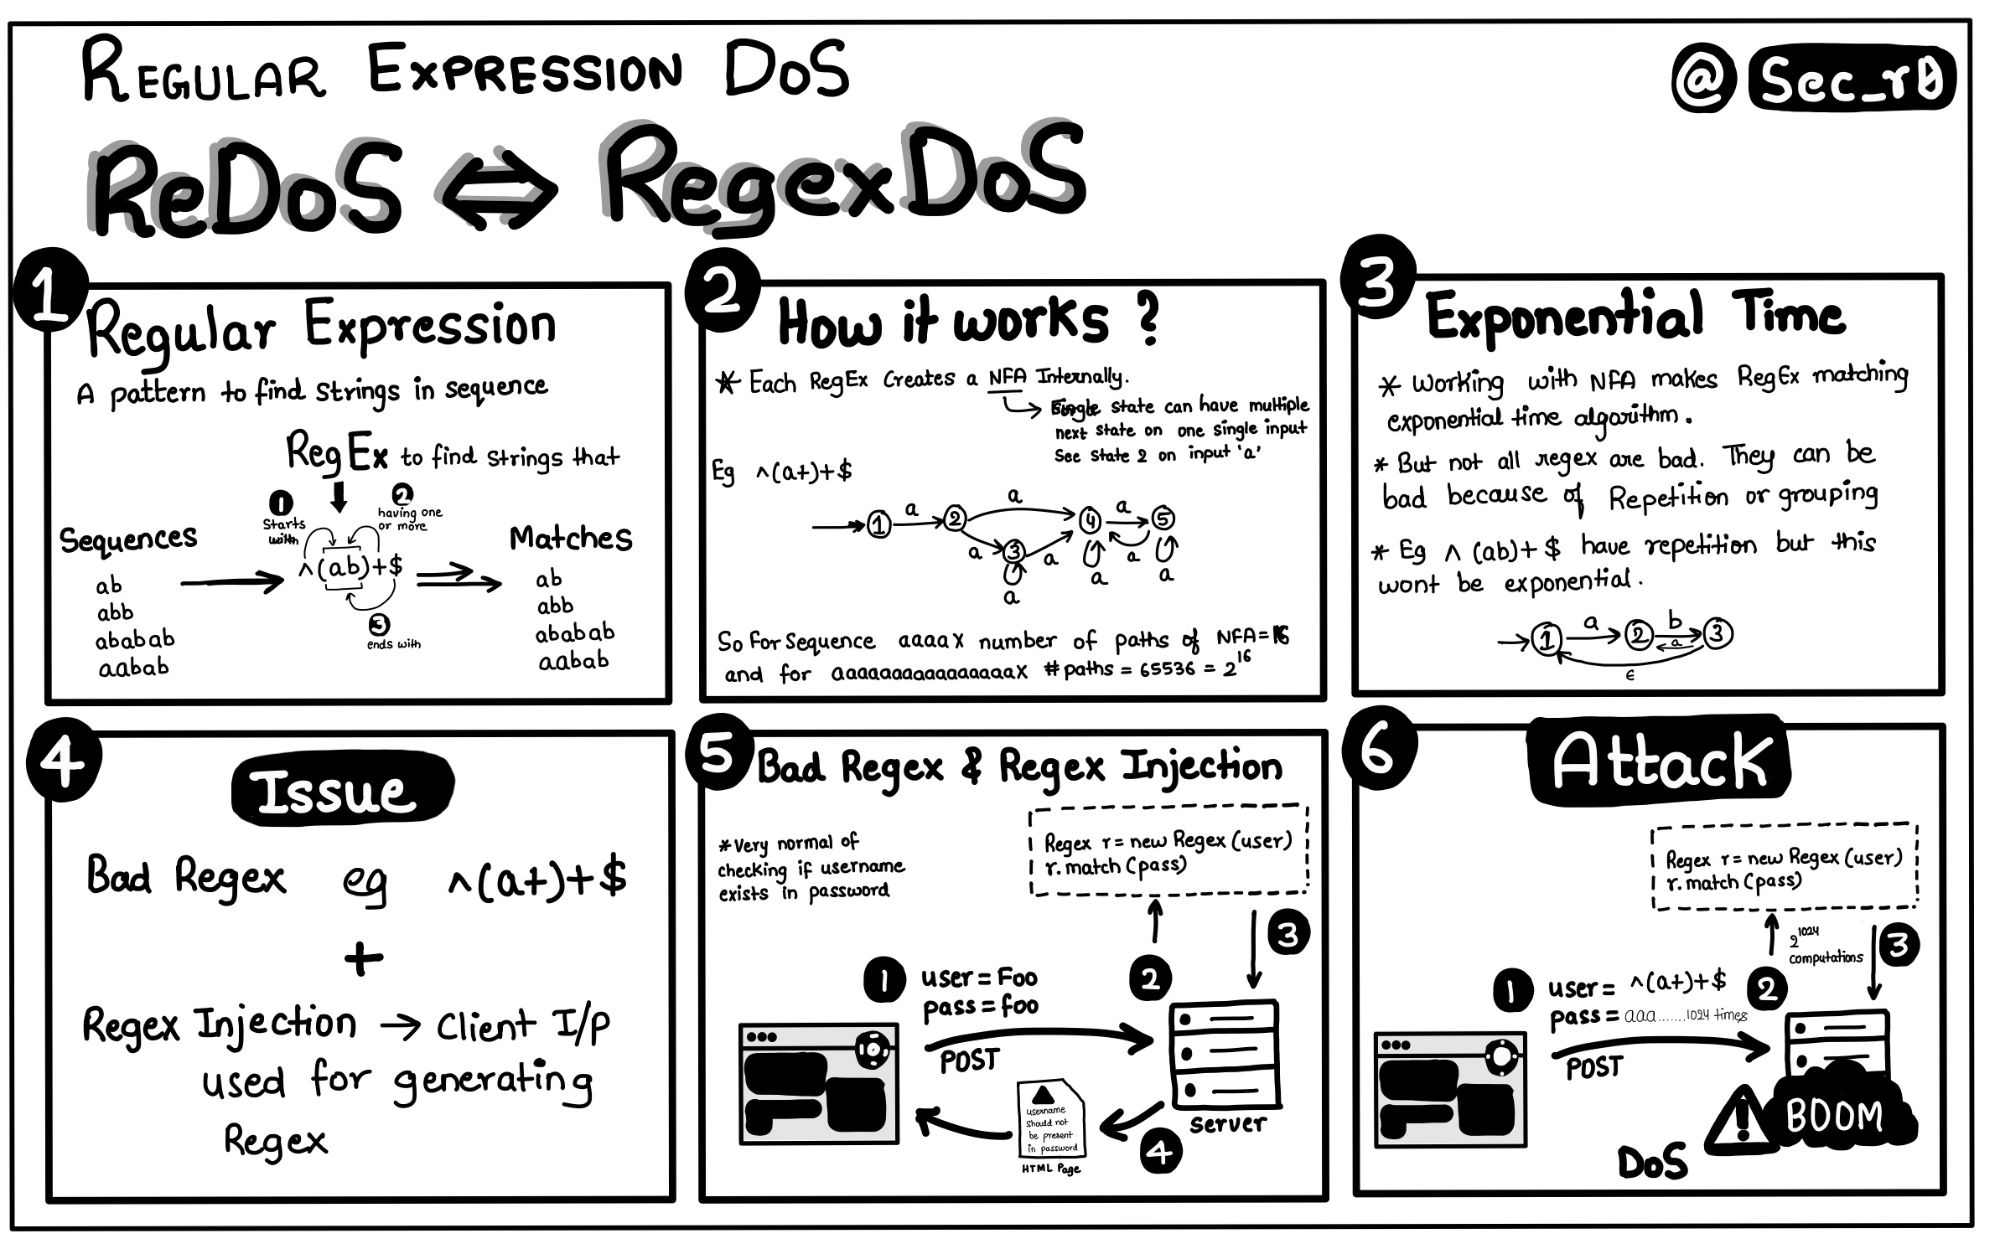 REGULAR EXPRESSION DoS
@ Sec_r0
ReDoS ⇔ RegexDoS
1
Regular Expression
A pattern to find strings in sequence
RegEx to find strings that
1
Starts
with
2
having one
or more
Sequences
ab
abb
ababab
aabab
^(ab)+$
3
ends with
Matches
ab
abb
ababab
aabab
2
How it works ?
* Each RegEx Creates a NFA Internally.
Single state can have multiple
next state on one single input
See State 2 on input 'a'
Eg ^(a+)+$
a
a
a
a
a
a
a
a
a
1
2
3
4
5
So For Sequence aaaax number of paths of NFA = 16
and for aaaaaaaaaaaaaaaax #paths = 65536 = 2^16
3
Exponential Time
* Working with NFA makes RegEx matching
exponential time algorithm.
* But not all regex are bad. They can be
bad because of Repetition or grouping
* Eg ^(ab)+$ have repetition but this
wont be exponential.
1 a 2 b 3
a
ϵ
4
Issue
Bad Regex eg ^(a+)+$
+
Regex Injection → Client I/P
used for generating
Regex
5
Bad Regex & Regex Injection
* Very normal of
checking if username
exists in password
Regex r = new Regex (user)
r.match (pass)
3
1
user = Foo
pass = foo
2
POST
username
should not
be present
in password
HTML Page
4
Server
6
Attack
Regex r = new Regex (user)
r.match (pass)
2^1024
computations
3
1
user = ^(a+)+$
pass = aaa.......1024 times
2
POST
BOOM
DoS